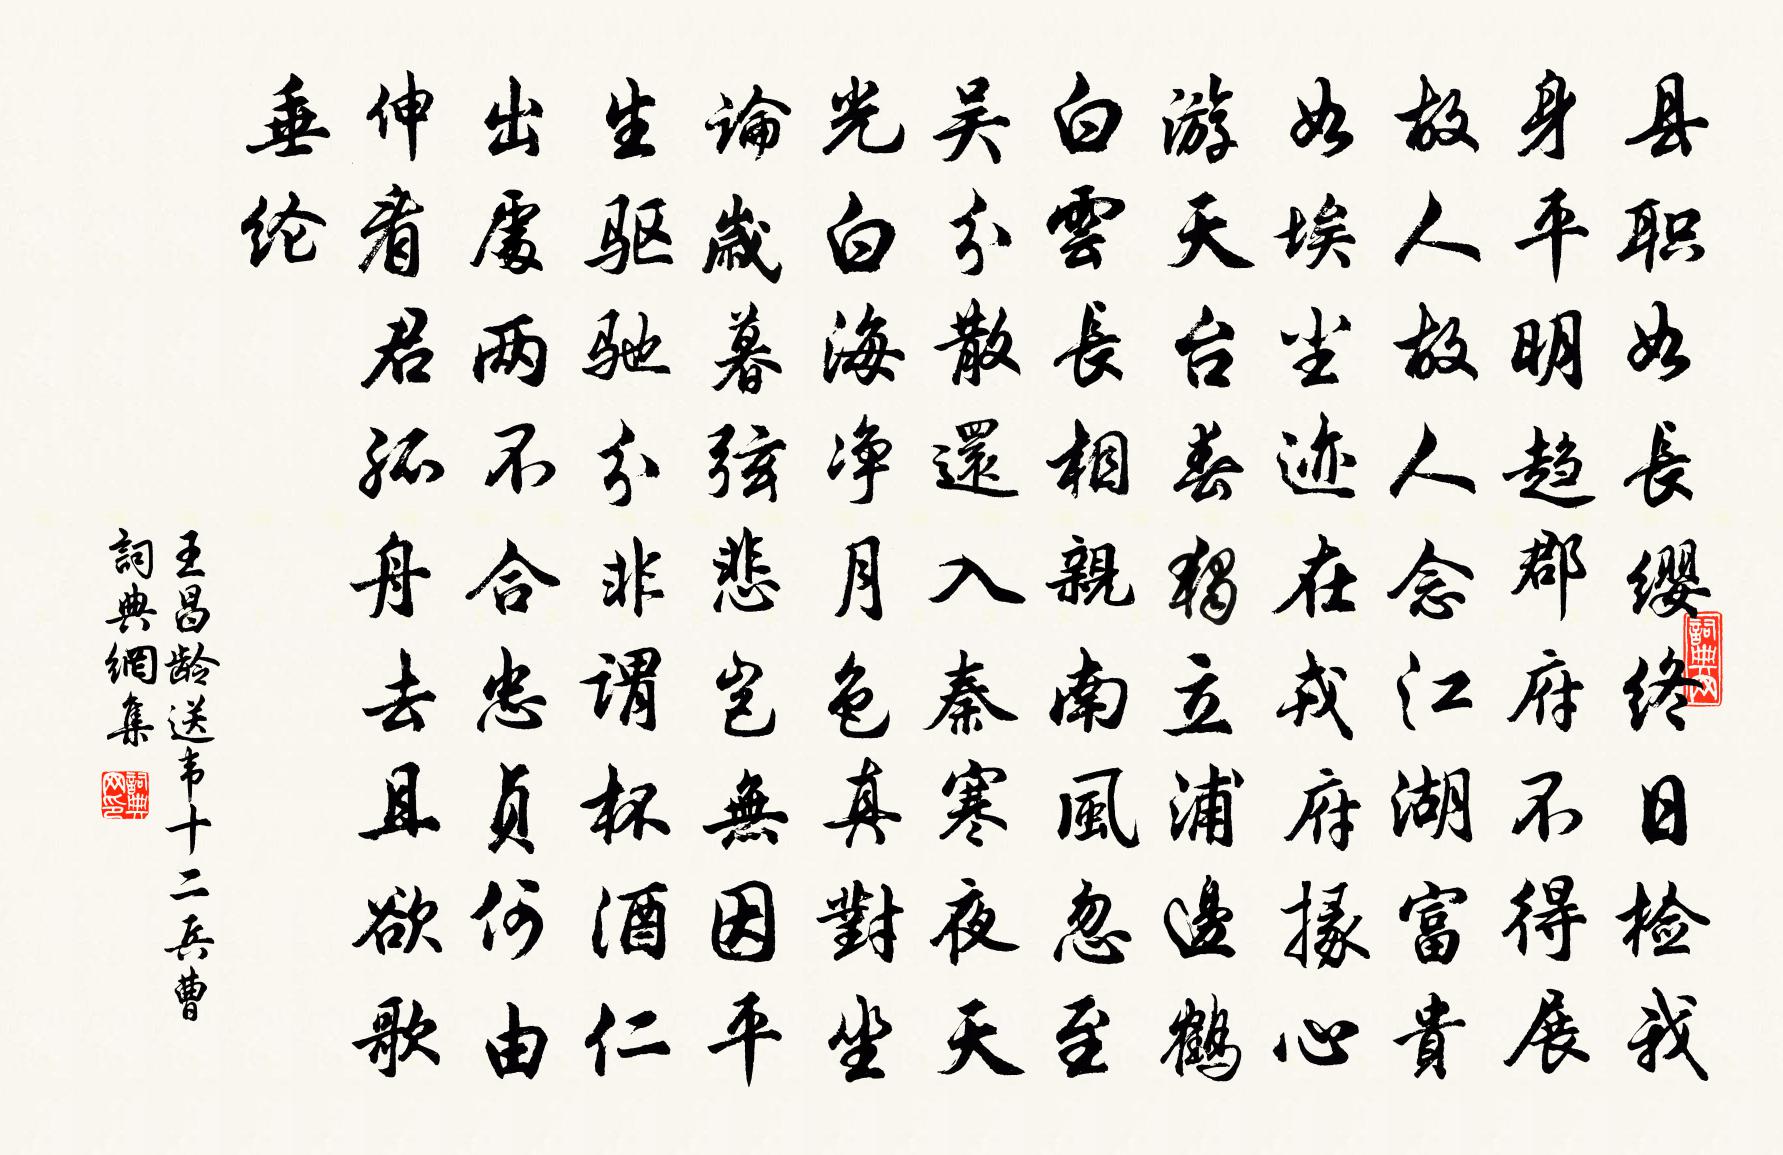 县职如長缨终日检我
身平明趋郡府不得展
故人故人念江湖富貴
如埃尘迹在戎府掾心
游天台春獨立浦邊鶴
白雲長相親南風忽至
吴分散還入秦寒夜天
光白海净月色真對坐
論歲暮弦悲岂無因平
生驱驰分非谓杯酒仁
出處两不合忠贞何由
伸看君孤舟去且欲歌
垂纶
王昌龄送韦十二兵曹
詞典網集
詞典网
詞典网印